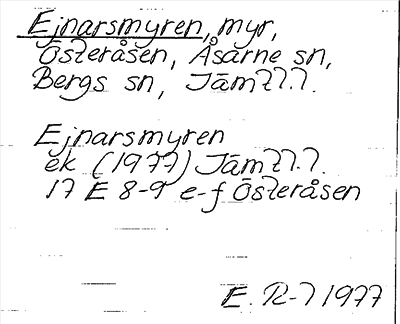 Ejnarsmyren, myr,
Österåsen, Åsarne sn,
Bergs sn, Jämtl.
Ejnarsmyren
ek (1977) Jämtl.
17 E 8-9 e-f Österåsen
E. R-l 1977